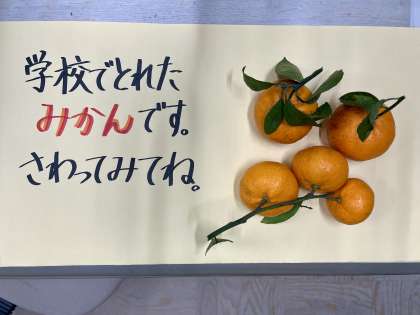 学校でとれた
みかんです。
さわってみてね。